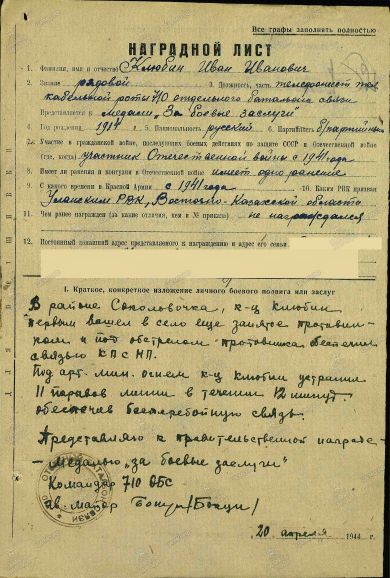 Все графы заполнять полностью
НАГРАДНОЙ ЛИСТ
1. Фамилия, имя и отчество Клюбин Иван Иванович
2. Звание рядовой 3. Должность, часть телефонист тел.
кабельной роты 710 отдельного батальона связи
Представляется к медали „За боевые заслуги“
4. Год рождения 1914 г. 5. Национальность русский 6. Партийность б/партийный
7. Участие в гражданской войне, последующих боевых действиях по защите СССР и Отечественной войне
(где, когда) участник Отечественной войны с 1941 года
8. Имеет ли ранения и контузии в Отечественной войне имеет одно ранение
9. С какого времени в Красной Армии с 1941 года 10. Каким РВК призван
Уланским РВК, Восточно-Казахской области
11. Чем ранее награжден (за какие отличия, кем и № приказа) не награждался
12. Постоянный домашний адрес представляемого к награждению и адрес его семьи
I. Краткое, конкретное изложение личного боевого подвига или заслуг
В районе Соколовочка, к-ц Клюбин
первым вошел в село еще занятое противни-
ком и под обстрелом противника обеспечил
связью КП с НП.
Под арт. мин. огнем к-ц Клюбин устранил
11 порывов линии в течении 12 минут.
обеспечив бесперебойную связь.
Представляю к правительственной награде
- медалью „за боевые заслуги“
Командир 710 ОБС
гв. майор
20 апреля 1944 г.